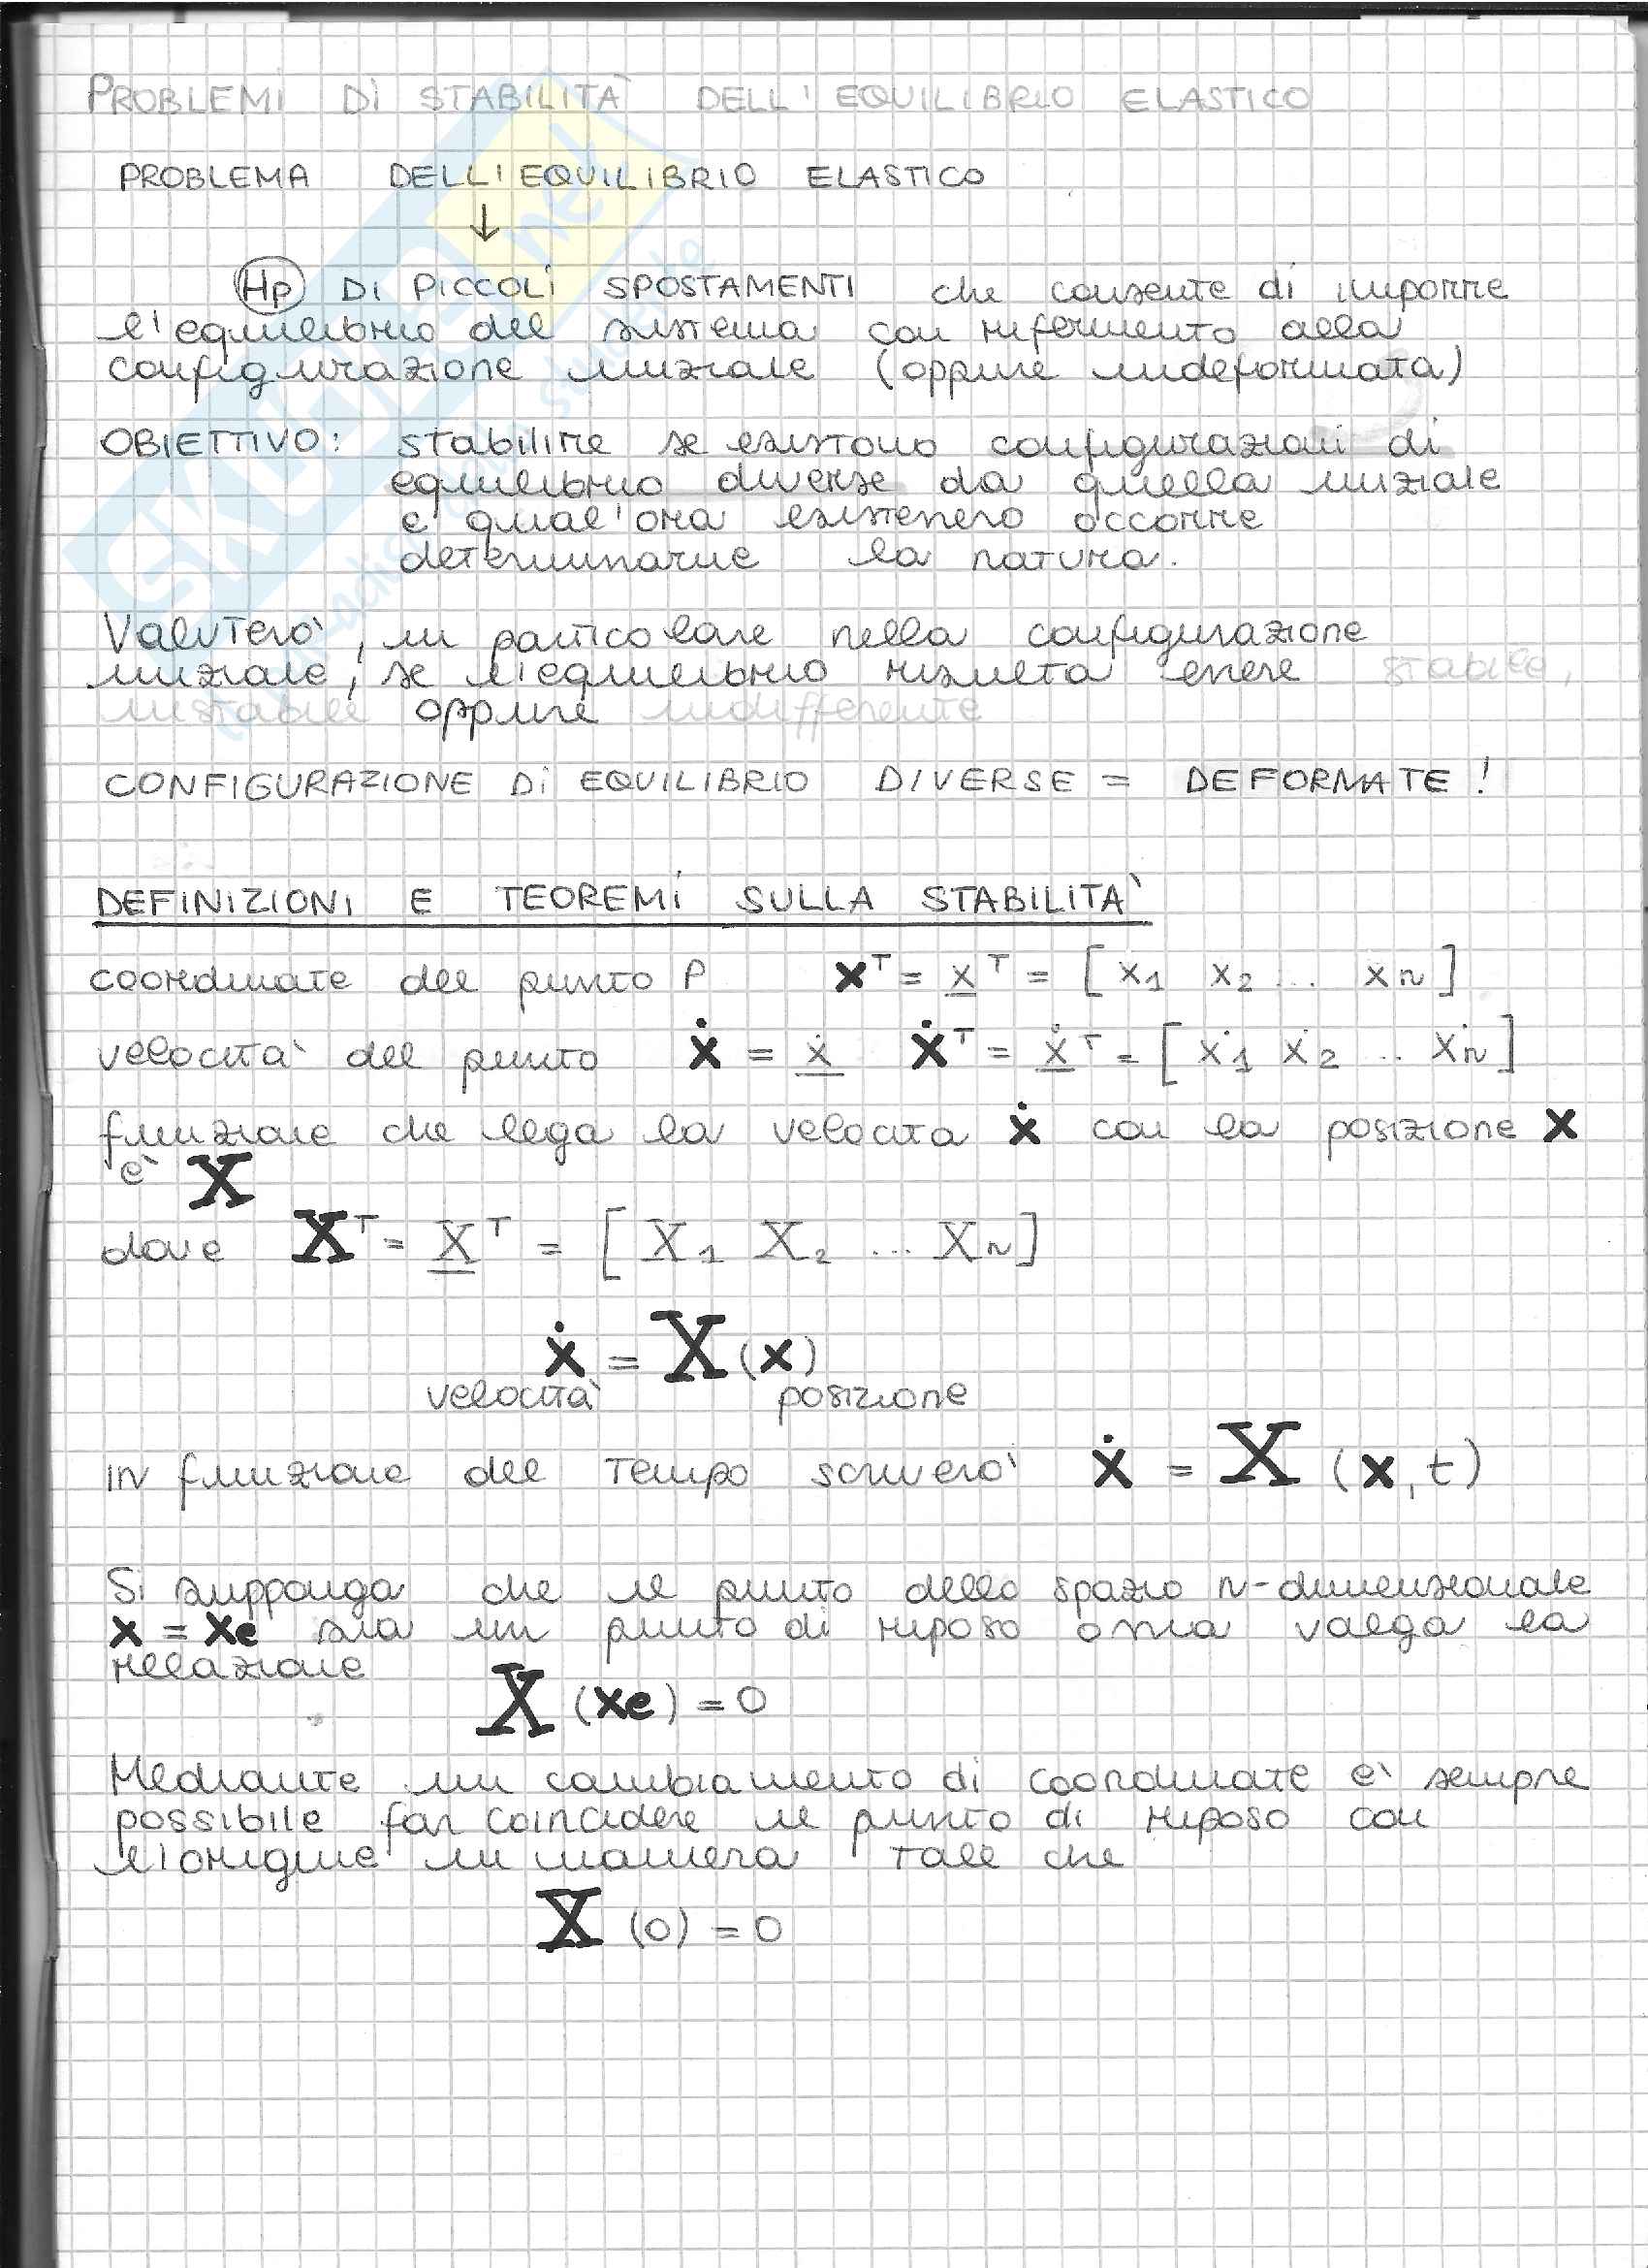 PROBLEMI DI STABILITA' DELL'EQUILIBRIO ELASTICO
PROBLEMA DELL'EQUILIBRIO ELASTICO
↓
Hp DI PICCOLI SPOSTAMENTI che consente di imporre
l'equilibrio del sistema con riferimento alla
configurazione iniziale (oppure indeformata)
OBIETTIVO: stabilire se esistono configurazioni di
equilibrio diverse da quella iniziale
e qual'ora esistenero occorre
determinarne la natura.
Valuterò, in particolare nella configurazione
iniziale, se l'equilibrio risulta essere stabile,
instabile oppure indifferente
CONFIGURAZIONE DI EQUILIBRIO DIVERSE = DEFORMATE!
DEFINIZIONI E TEOREMI SULLA STABILITA'
coordinate del punto P x^T = x^T = [x1 x2 ... xn]
velocità del punto ẋ = ẋ ẋ^T = ẋ^T = [ẋ1 ẋ2 .. ẋn]
funzione che lega la velocità ẋ con la posizione x
è X
dove X^T = X^T = [X1 X2 ... Xn]
ẋ = X(x)
velocità posizione
in funzione del tempo scriverò ẋ = X (x, t)
Si supponga che il punto dello spazio n-dimensionale
x = xe sia un punto di riposo ossia valga la
relazione
X (xe) = 0
Mediante un cambiamento di coordinate è sempre
possibile far coincidere il punto di riposo con
l'origine in maniera tale che
X (0) = 0